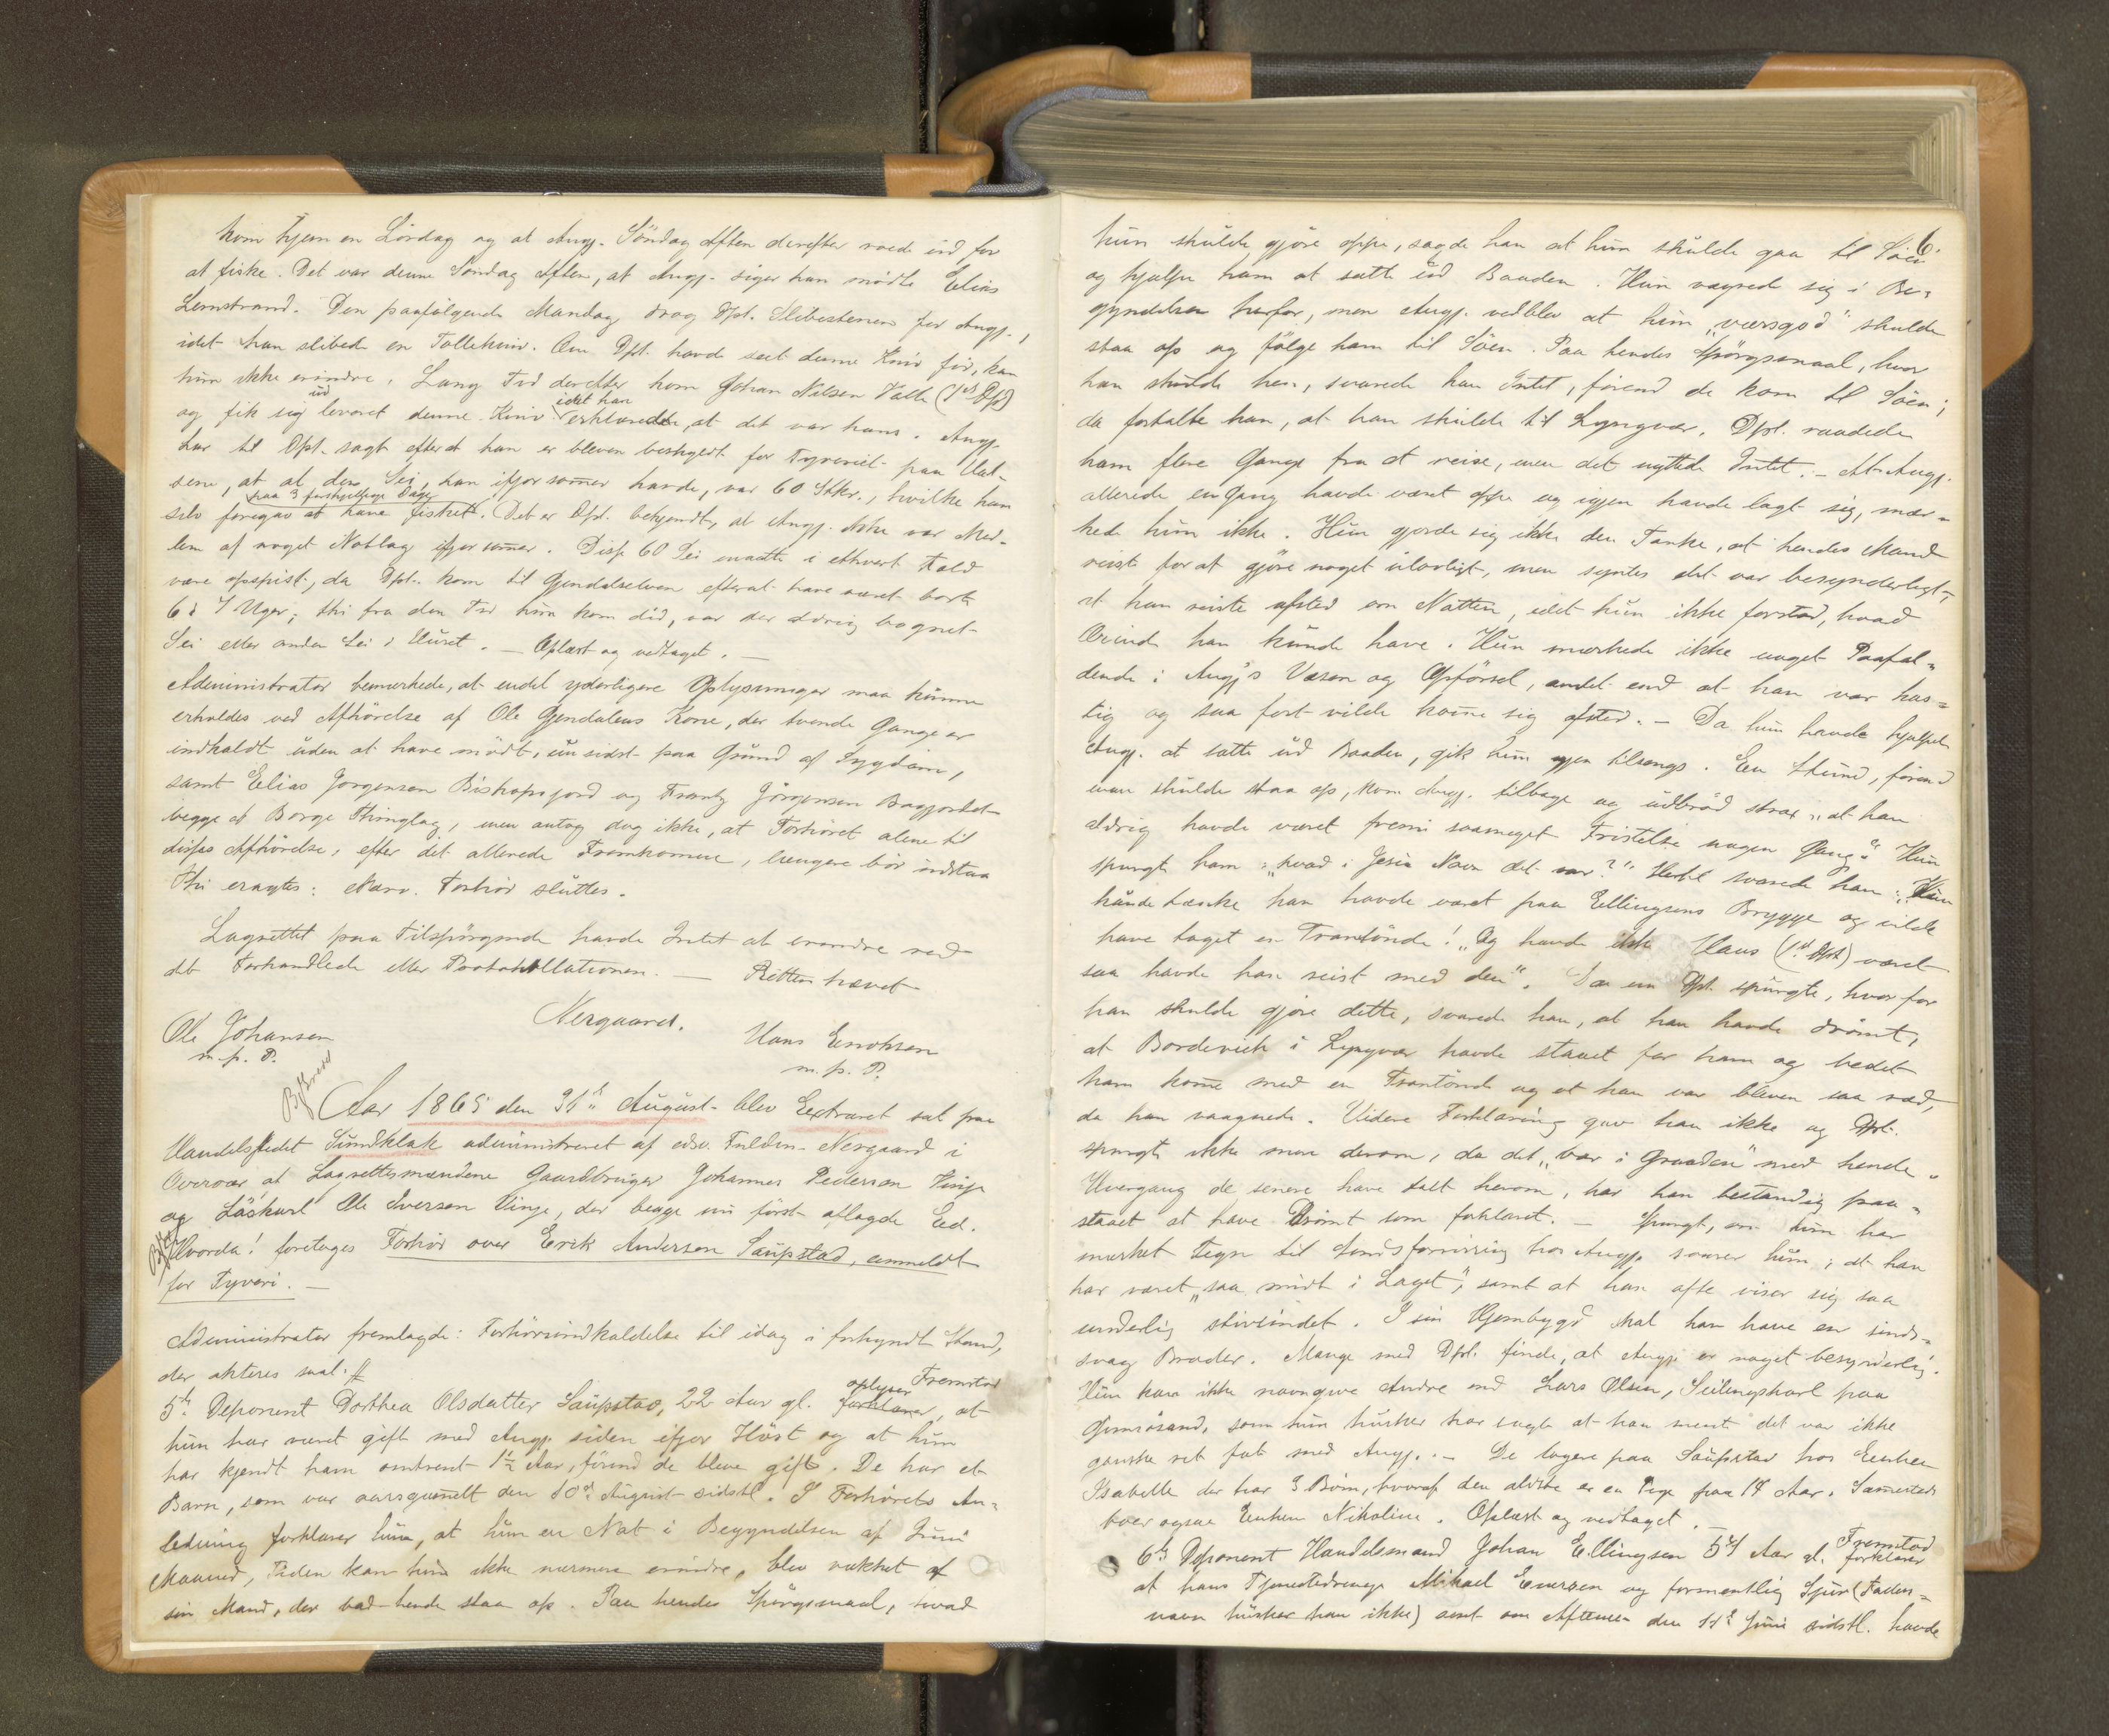 kom hjem en Lördag og at Angj. Söndag Aften derefter roede ud for
at fiske. Det var denne Söndag Aften, at Angj. siger han mödte Elias
Lemstrand. Den paafölgende Mandag drog Dpt. Slibestenen for Angj.,
idet han slibede en Tollekniv. Om Dpt. havde seet denne Kniv för, kan
hun ikke erindre. Lang Tid derefter kom Johan Nilsen Valle (1st Dpt)
ud idet han
og fik sig leveret denne Kniv erklærede, at det var hans. Angj.
har til Dpt. sagt efterat han er bleven beskyldt for Tyveriet paa Val-
sene, at al den Sei, han ifjor sommer havde, var 60 Stkr., hvilke han
paa 3 forskjellige Dage
selv foregav at have fisket. Det er Dpt. bekjendt, at Angj. ikke var Med-
lem af noget Notlag ifjor sommer. Disse 60 Sei maatte i ethvert Fald
være opspist, da Dpt. kom til Gjendalselven efterat have været borte
6 à 7 Uger; thi fra den Tid hun kom did, var der aldrig kogt
Sei eller anden Sei i Huset. — Oplæst og vedtaget. —
Administrator bemærkede, at endel yderligere Oplysninger maa kunne
erholdes ved Afhörelse af Ole Gjendalens Kone, der tvende Gange er
indkaldt uden at have mödt, nu sidst paa Grund af Sygdom,
samt Elias Jörgensen Bishopsjord og Frantz Jörgensen Bagjordet
begge af Borge Thinglag, men antog dog ikke, at Forhöret alene til
disses Afhörelse, efter det allerede Fremkomne, længere bör udstaa
Thi eragtes: Nærv. Forhör sluttes.
Lagrettet paa Tilspörgende havde Intet at erindre ved
det Forhandlede eller Protokollationen. — Retten hævet
Nergaard.
Ole Johansen
m. p. P.
Hans Enoksen
m. p. P.
Aar 1865 den 31te August blev Extraret sat paa
Handelstedet Sundklak administreret af edsv. Fuldm. Nergaard i
Overvær af Lagrettesmændene Gaardbruger Johannes Pedersen Vinje
og Löskarl Ole Iversen Vinje, der begge nu först aflagde Ed.
Hvorda! foretages Forhör over Erik Andersen Saupstad, anmeldt
for Tyveri. —
Administrator fremlagde: Forhörsindkaldelse til idag i forkyndt Stand,
der akteres saal: #
oplyser Fremstod
5te Deponent Dorthea Olsdatter Saupstad, 22 Aar gl. forklarer, at
hun har været gift med Angj. siden ifjor Höst og at hun
har kjendt ham omtrent 1½ Aar, förend de bleve gift. De har et
Barn, som var aarsgammelt den 10de August sidstl. I Forhörets An-
ledning forklarer hun, at hun en Nat i Begyndelsen af Juni
Maaned, Tiden kan hun ikke nærmere erindre, blev vækket af
sin Mand, der bad hende staa op. Paa hendes Spörgsmaal, hvad
6.
hun skulde gjöre oppe, sagde han at hun skulde gaa til Söen
og hjælpe ham at sætte ud Baaden. Hun vægrede sig i Be-
gyndelsen herfor, men Angj. vedblev at hun „værsgod" skulde
staa op og fölge ham til Söen. Paa hendes Spörgsmaal, hvor
han skulde hen, svarede han Intet, förend de kom til Söen;
da fortalte han, at han skulde til Lyngvær. Dpt. raadede
ham flere Gange fra at reise, men det nyttede Intet. — At Angj.
allerede en Gang havde været oppe og igjen havde lagt sig, mær-
kede hun ikke. Hun gjorde sig ikke den Tanke, at hendes Mand
reiste for at gjöre noget ulovligt, men syntes det var besynderligt,
at han reiste afsted om Natten, idet hun ikke forstod, hvad
Ærind han kunde have. Hun mærkede ikke noget Paafal-
dende i Angj's Væsen og Opförsel, andet end at han var has-
tig og saa fort vilde komme sig afsted. — Da hun havde hjulpet
Angj. at sætte ud Baaden, gik hun igjen tilsengs. En Stund, förend
man skulde staa op, kom Angj. tilbage og udbröd strax „at han
aldrig havde været fremi saameget Fristelse nogen Gang." Hun
spurgte ham: „hvad i Jesu Navn det var?" Hertil svarede han: „Hun
kunde tænke han havde været paa Ellingsens Brygge og vilde
have taget en Trantönde! „Og havde ikke Hans (1st Dpt) været
saa havde han reist med den". Da nu Dpt. spurgte, hvorfor
han skulde gjöre dette, svarede han, at han havde drömt,
at Bordevich i Lyngvær havde staaet for ham og bedet
ham komme med en Trantönde og at han var bleven saa ræd,
da han vaagnede. Videre Forklaring gav han ikke og Dpt.
spurgte ikke mere derom, da det „var i Graaden" med hende.
Hvergang de senere have talt herom, har han bestandig paa-
staaet at have drömt som forklaret. — Spurgt, om hun har
mærket Tegn til Sindsforvirring hos Angj., svarer hun, at han
har været „saa midt i Laget", samt at han ofte viser sig saa
underlig stivsindet. I sin Hjembygd skal han have en sinds-
svag Broder. Mange med Dpt. finde, at Angj. er noget besynderlig.
Hun kan ikke navngive Andre end Lars Olsen, Seilingskarl paa
Gimsösand, som hun husker har sagt at han mente det var ikke
ganske ret fat med Angj. — De logere paa Saupstad hos Enken
Isabelle der har 3 Börn, hvoraf den ældste er en Pige paa 18 Aar. Sammesteds
boer ogsaa Enken Nikoline. Oplæst og vedtaget. —
Fremstod
6te Deponent Handelsmand Johan Ellingsen 54 Aar gl. forklarer
at hans Tjenestedrenge Mikael Evensen og formentlig Sjur (Faders-
navn husker han ikke) sent om Aftenen den 11te Juni sidstl. havde